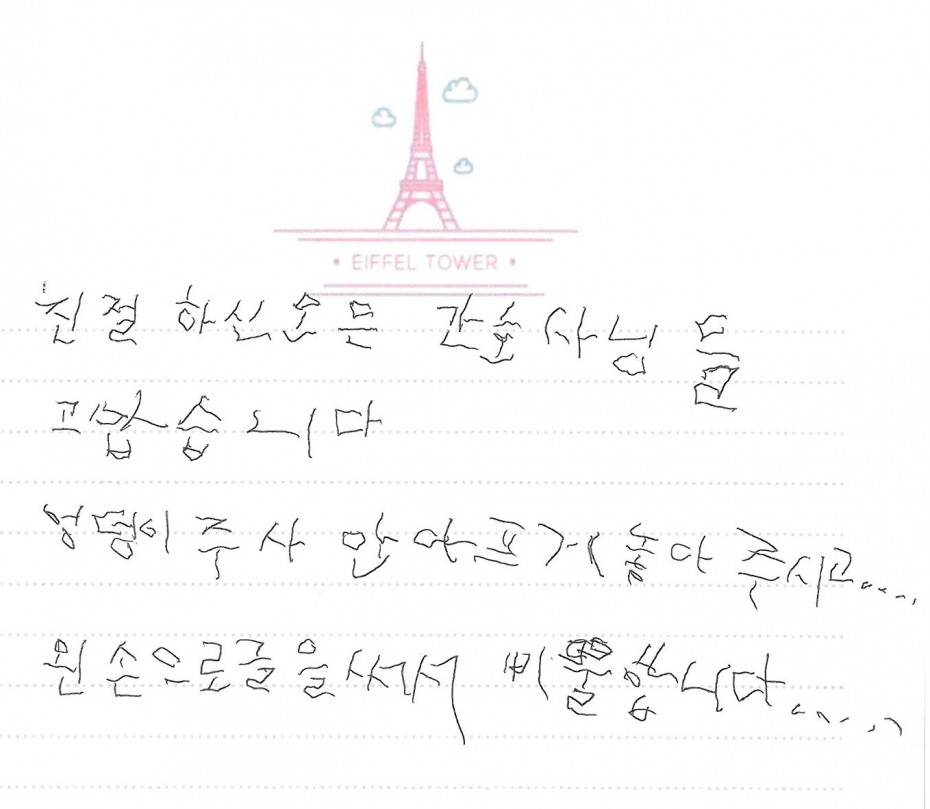 • EIFFEL TOWER •
친절 하신 모든 간호사님 들
고맙습 니다
엉덩이 주사 안 아프게 놓아 주시고.....
왼손으로글을써서 삐뚤합니다......